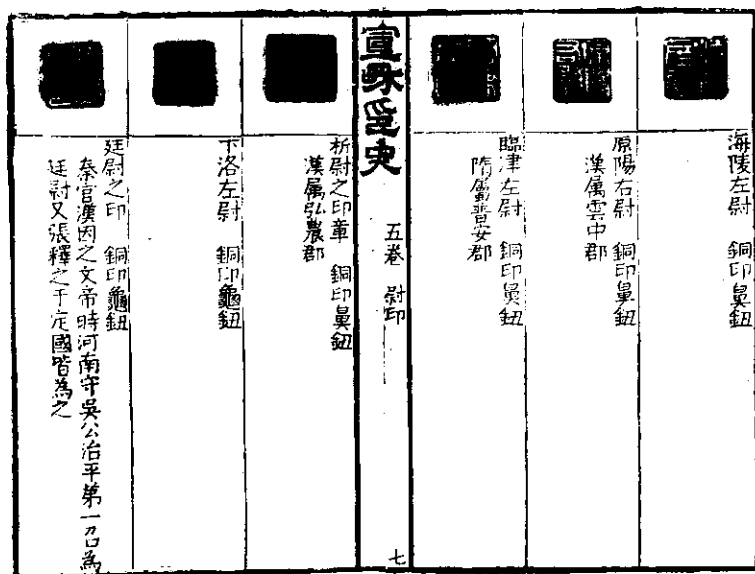 海陵左尉 銅印鼻鈕
原陽右尉 銅印鼻鈕
漢属雲中郡
臨津左尉 銅印鼻鈕
隋屬普安郡
宣和印史
五卷 尉印
七
析尉之印章 銅印鼻鈕
漢属弘農郡
下洛左尉 銅印龜鈕
廷尉之印 銅印龜鈕
秦官漢因之文帝時河南守吳公治平第一召為
廷尉又張釋之于定國皆為之